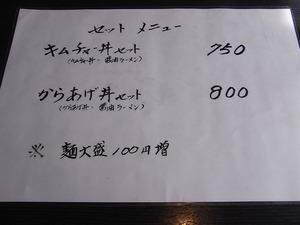 セット メニュー
キムチ丼セット 750
(キムチ丼・醤油ラーメン)
からあげ丼セット 800
(からあげ丼・醤油ラーメン)
※ 麺大盛100円増